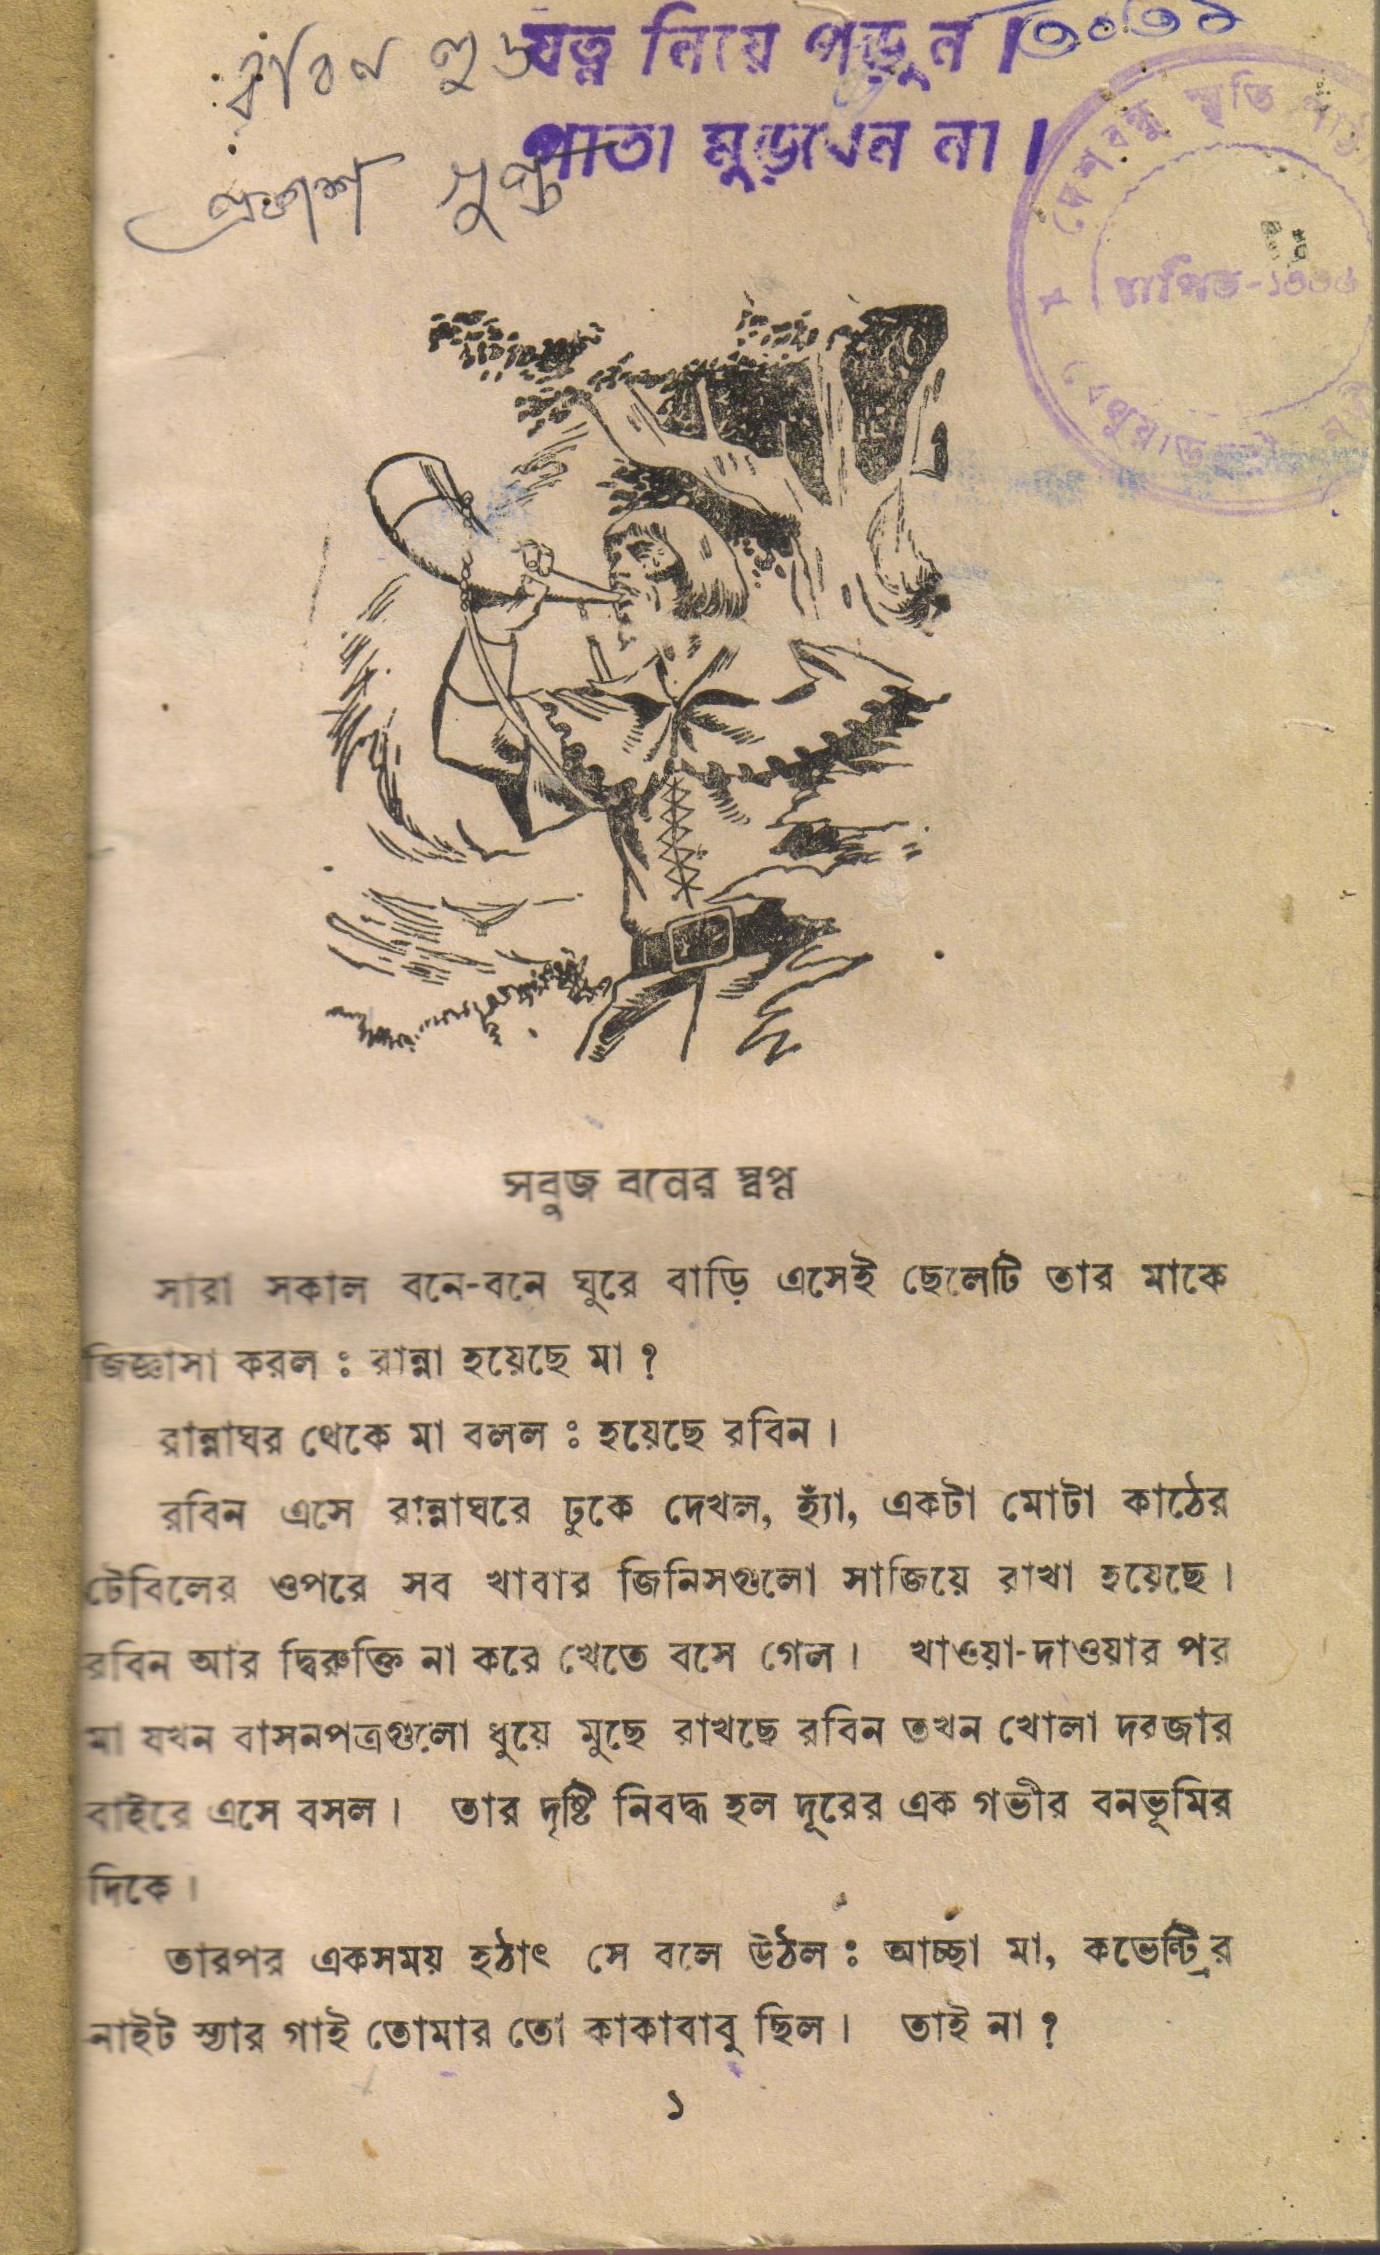 রবিন হুড
যত্ন নিয়ে পড়ুন।
৩০৩১
পাতা মুড়বেন না।
প্রকাশ গুপ্ত
দেশবন্ধু স্মৃতি
স্থাপিত-১৩৩৬
সবুজ বনের স্বপ্ন
সারা সকাল বনে-বনে ঘুরে বাড়ি এসেই ছেলেটি তার মাকে
জিজ্ঞাসা করল : রান্না হয়েছে মা ?
রান্নাঘর থেকে মা বলল : হয়েছে রবিন।
রবিন এসে রান্নাঘরে ঢুকে দেখল, হ্যাঁ, একটা মোটা কাঠের
টেবিলের ওপরে সব খাবার জিনিসগুলো সাজিয়ে রাখা হয়েছে।
রবিন আর দ্বিরুক্তি না করে খেতে বসে গেল। খাওয়া-দাওয়ার পর
মা যখন বাসনপত্রগুলো ধুয়ে মুছে রাখছে রবিন তখন খোলা দরজার
বাইরে এসে বসল। তার দৃষ্টি নিবদ্ধ হল দূরের এক গভীর বনভূমির
দিকে।
তারপর একসময় হঠাৎ সে বলে উঠল : আচ্ছা মা, কভেন্ট্রির
নাইট স্যার গাই তোমার তো কাকাবাবু ছিল। তাই না ?
১